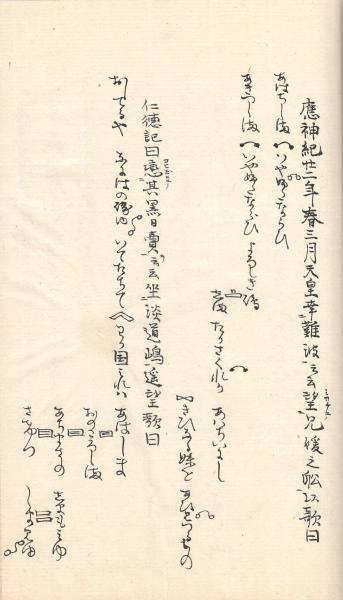 應神紀廿二年春三月天皇幸難波云云望兄媛之舩以歌曰
あはちしま いやふたならひ
あきつしま いやふたならひ よろしき嶋
たれかたされ
きひなる妹を あひみつるもの
仁徳記曰戀其黒日賣云云坐淡道嶋遥望歌曰
おしてるや なにはの埼由 いてたちて わか国みれは あはしま
おのころしま
あちまさの しまもみゆ
さけつ しまみゆ